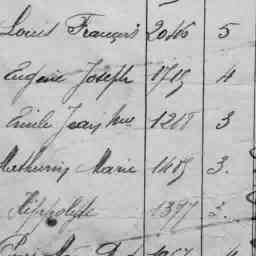 Louis François 2046 5
Eugène Joseph 1715 4
Emile Jean 1218 3
Mathurin Marie 1415 3.
Hippolyte 1397 3.